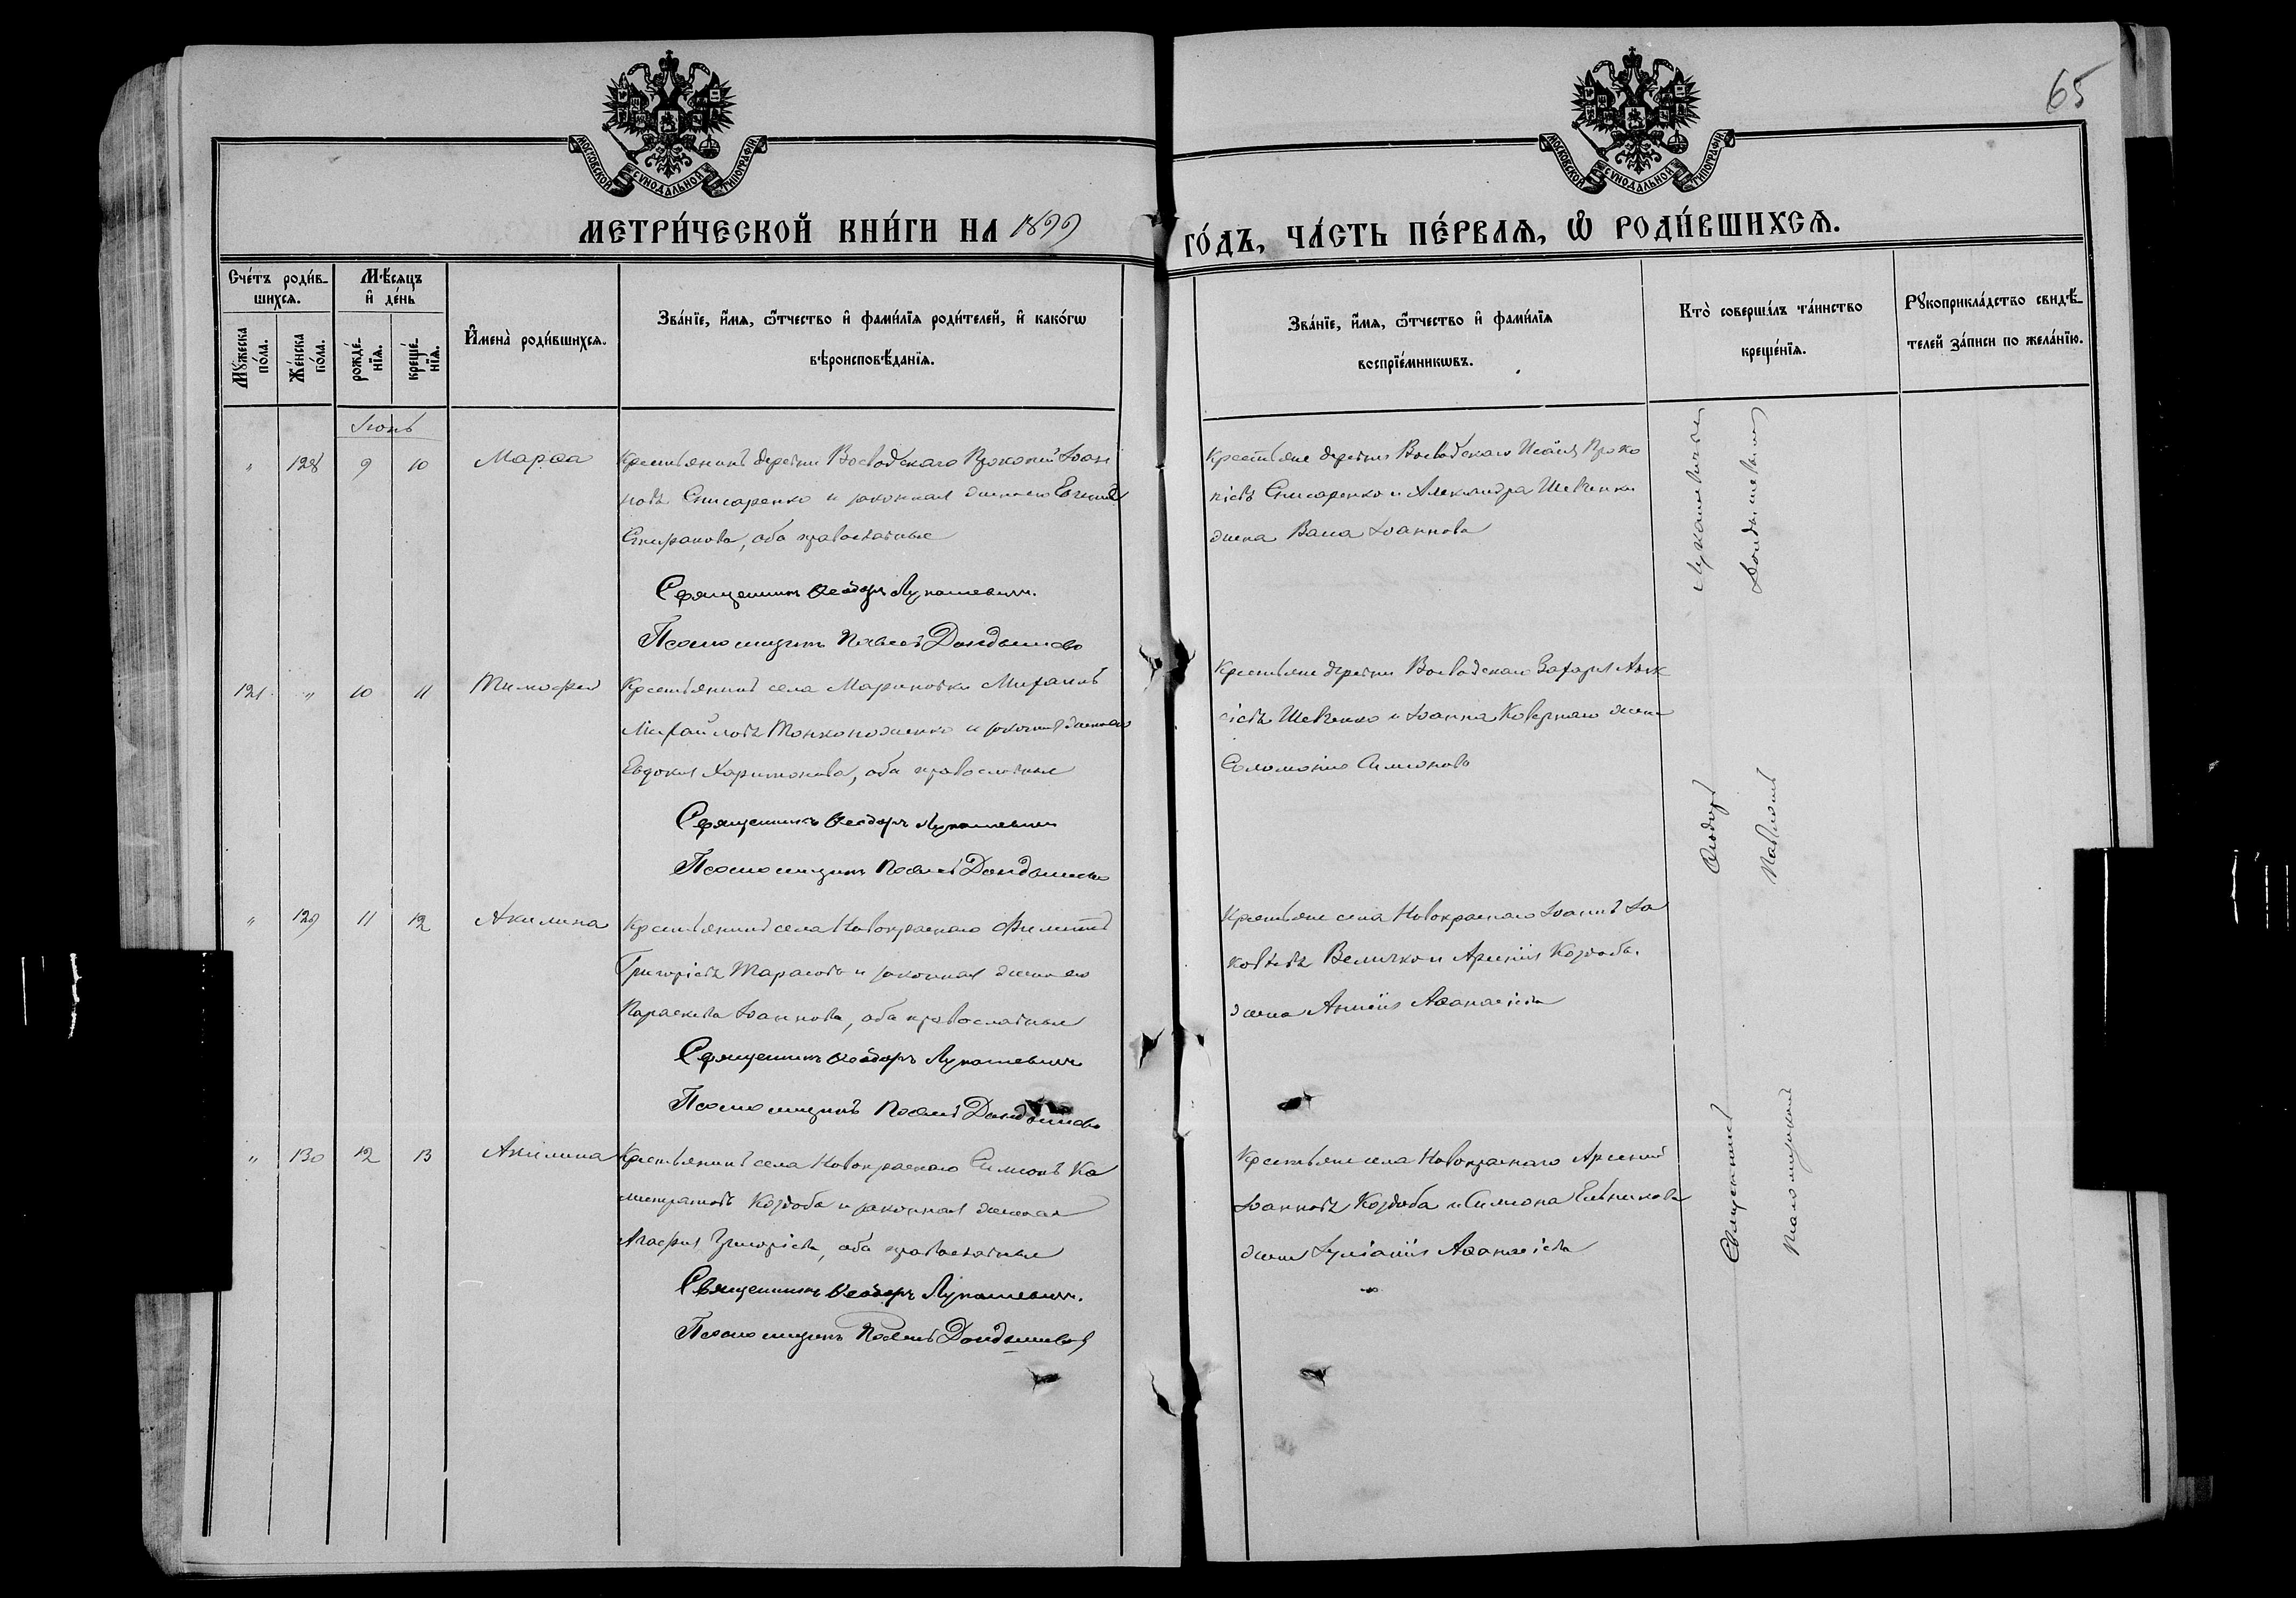 65
МОСКОВСКОЙ СУНОДАЛЬНОЙ ТИПОГРАФІИ
МОСКОВСКОЙ СУНОДАЛЬНОЙ ТИПОГРАФІИ
МЕТРИ́ЧЕСКОЙ КНИ́ГИ НА 1899
ГО́ДЪ, ЧА́СТЬ ПЕ́РВАѦ, Ѽ РОДИ́ВШИХСѦ.
Сче́тъ роди́в-
шихсѧ.
Мꙋ́жеска
по́ла.
Же́нска
по́ла.
Мѣ́сѧцъ
и҆ де́нь
рожде́-
нїѧ.
креще́-
нїѧ.
И҆мена̀ роди́вшихсѧ.
Зва́нїе, и҆́мѧ, ѻ҆́тчество и҆ фами́лїѧ роди́телей, и҆ како́гѡ
вѣроисповѣ́данїѧ.
Зва́нїе, и҆́мѧ, ѻ҆́тчество и҆ фами́лїѧ
воспрїе́мникѡвъ.
Кто̀ соверша́лъ та́инство
креще́нїѧ.
Рꙋкоприкла́дство свидѣ́-
телей за́писи по жела́нїю.
Іюнь
" 128 9 10 Марѳа
Крестьянинъ деревни Воеводскаго Прокопій Іоан
новъ Снисаренко и законная жена его
Спиранова, оба православные
Священникъ Ѳеодоръ Лукашевичъ.
Псаломщикъ Павелъ
Крестьяне деревни Воеводскаго Исаія Проко
піевъ Снисаренко и Александра Шевченко
жена Васса Іоаннова
121 " 10 11 Тимофей
Крестьянинъ села Мариновки Михаилъ
Михайловъ Тонконоженко и законная жена его
Евдокія Харитонова, оба православные
Священникъ Ѳеодоръ Лукашевичъ
Псаломщикъ Павелъ
Крестьяне деревни Воеводскаго Захарія
Шевченко и Іоанна Ковернаго жена
Соломонія Симеонова
" 129 11 12 Акилина
Крестьянинъ села Новокраснаго
Григоріевъ Тарасовъ и законная жена его
Параскева Іоаннова, оба православные
Священникъ Ѳеодоръ Лукашевичъ
Псаломщикъ Павелъ
Крестьяне села Новокраснаго Іоаннъ Іа
ковлевъ Величко и Арсенія Коздоба
жена Аѳанасіева
" 130 12 13 Акилина
Крестьянинъ села Новокраснаго Симеонъ Ка
листратовъ Коздоба и законная жена его
Агафія Григоріева, оба православные
Священникъ Ѳеодоръ Лукашевичъ.
Псаломщикъ Павелъ
Крестьяне села Новокраснаго Арсеній
Іоанновъ Коздоба и Симеона
жена Іуліанія Аѳанасіева
Священникъ Ѳеодоръ Лукашевичъ
Псаломщикъ Павелъ